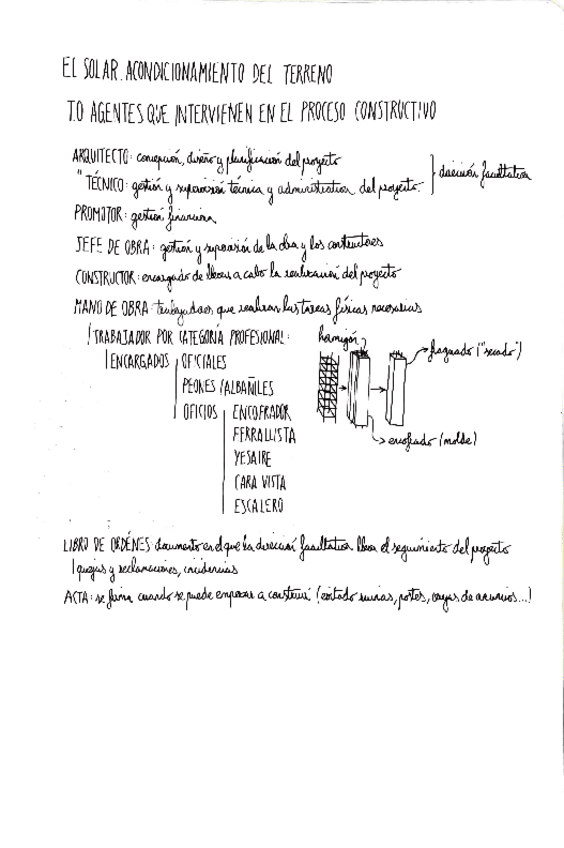 EL SOLAR. ACONDICIONAMIENTO DEL TERRENO
T.0 AGENTES QUE INTERVIENEN EN EL PROCESO CONSTRUCTIVO
ARQUITECTO: concepción, diseño y planificación del proyecto
" TÉCNICO: gestión y supervisión técnica y administrativa del proyecto
dirección facultativa
PROMOTOR: gestión financiera
JEFE DE OBRA: gestión y supervisión de la obra y los contructores
CONSTRUCTOR: encargado de llevar a cabo la realización del proyecto
MANO DE OBRA: trabajadores que realizan las tareas físicas necesarias
TRABAJADOR POR CATEGORÍA PROFESIONAL:
hormigón
ENCARGADOS
OFICIALES
fraguado ("secado")
PEONES / ALBAÑILES
OFICIOS
ENCOFRADOR
FERRALLISTA
encofrado (molde)
YESAIRE
CARA VISTA
ESCALERO
LIBRO DE ORDENES: documento en el que la dirección facultativa lleva el seguimiento del proyecto
quejas y reclamaciones, incidencias
ACTA: se firma cuando se puede empezar a construir ( ruinas, postes, de anuncios...)